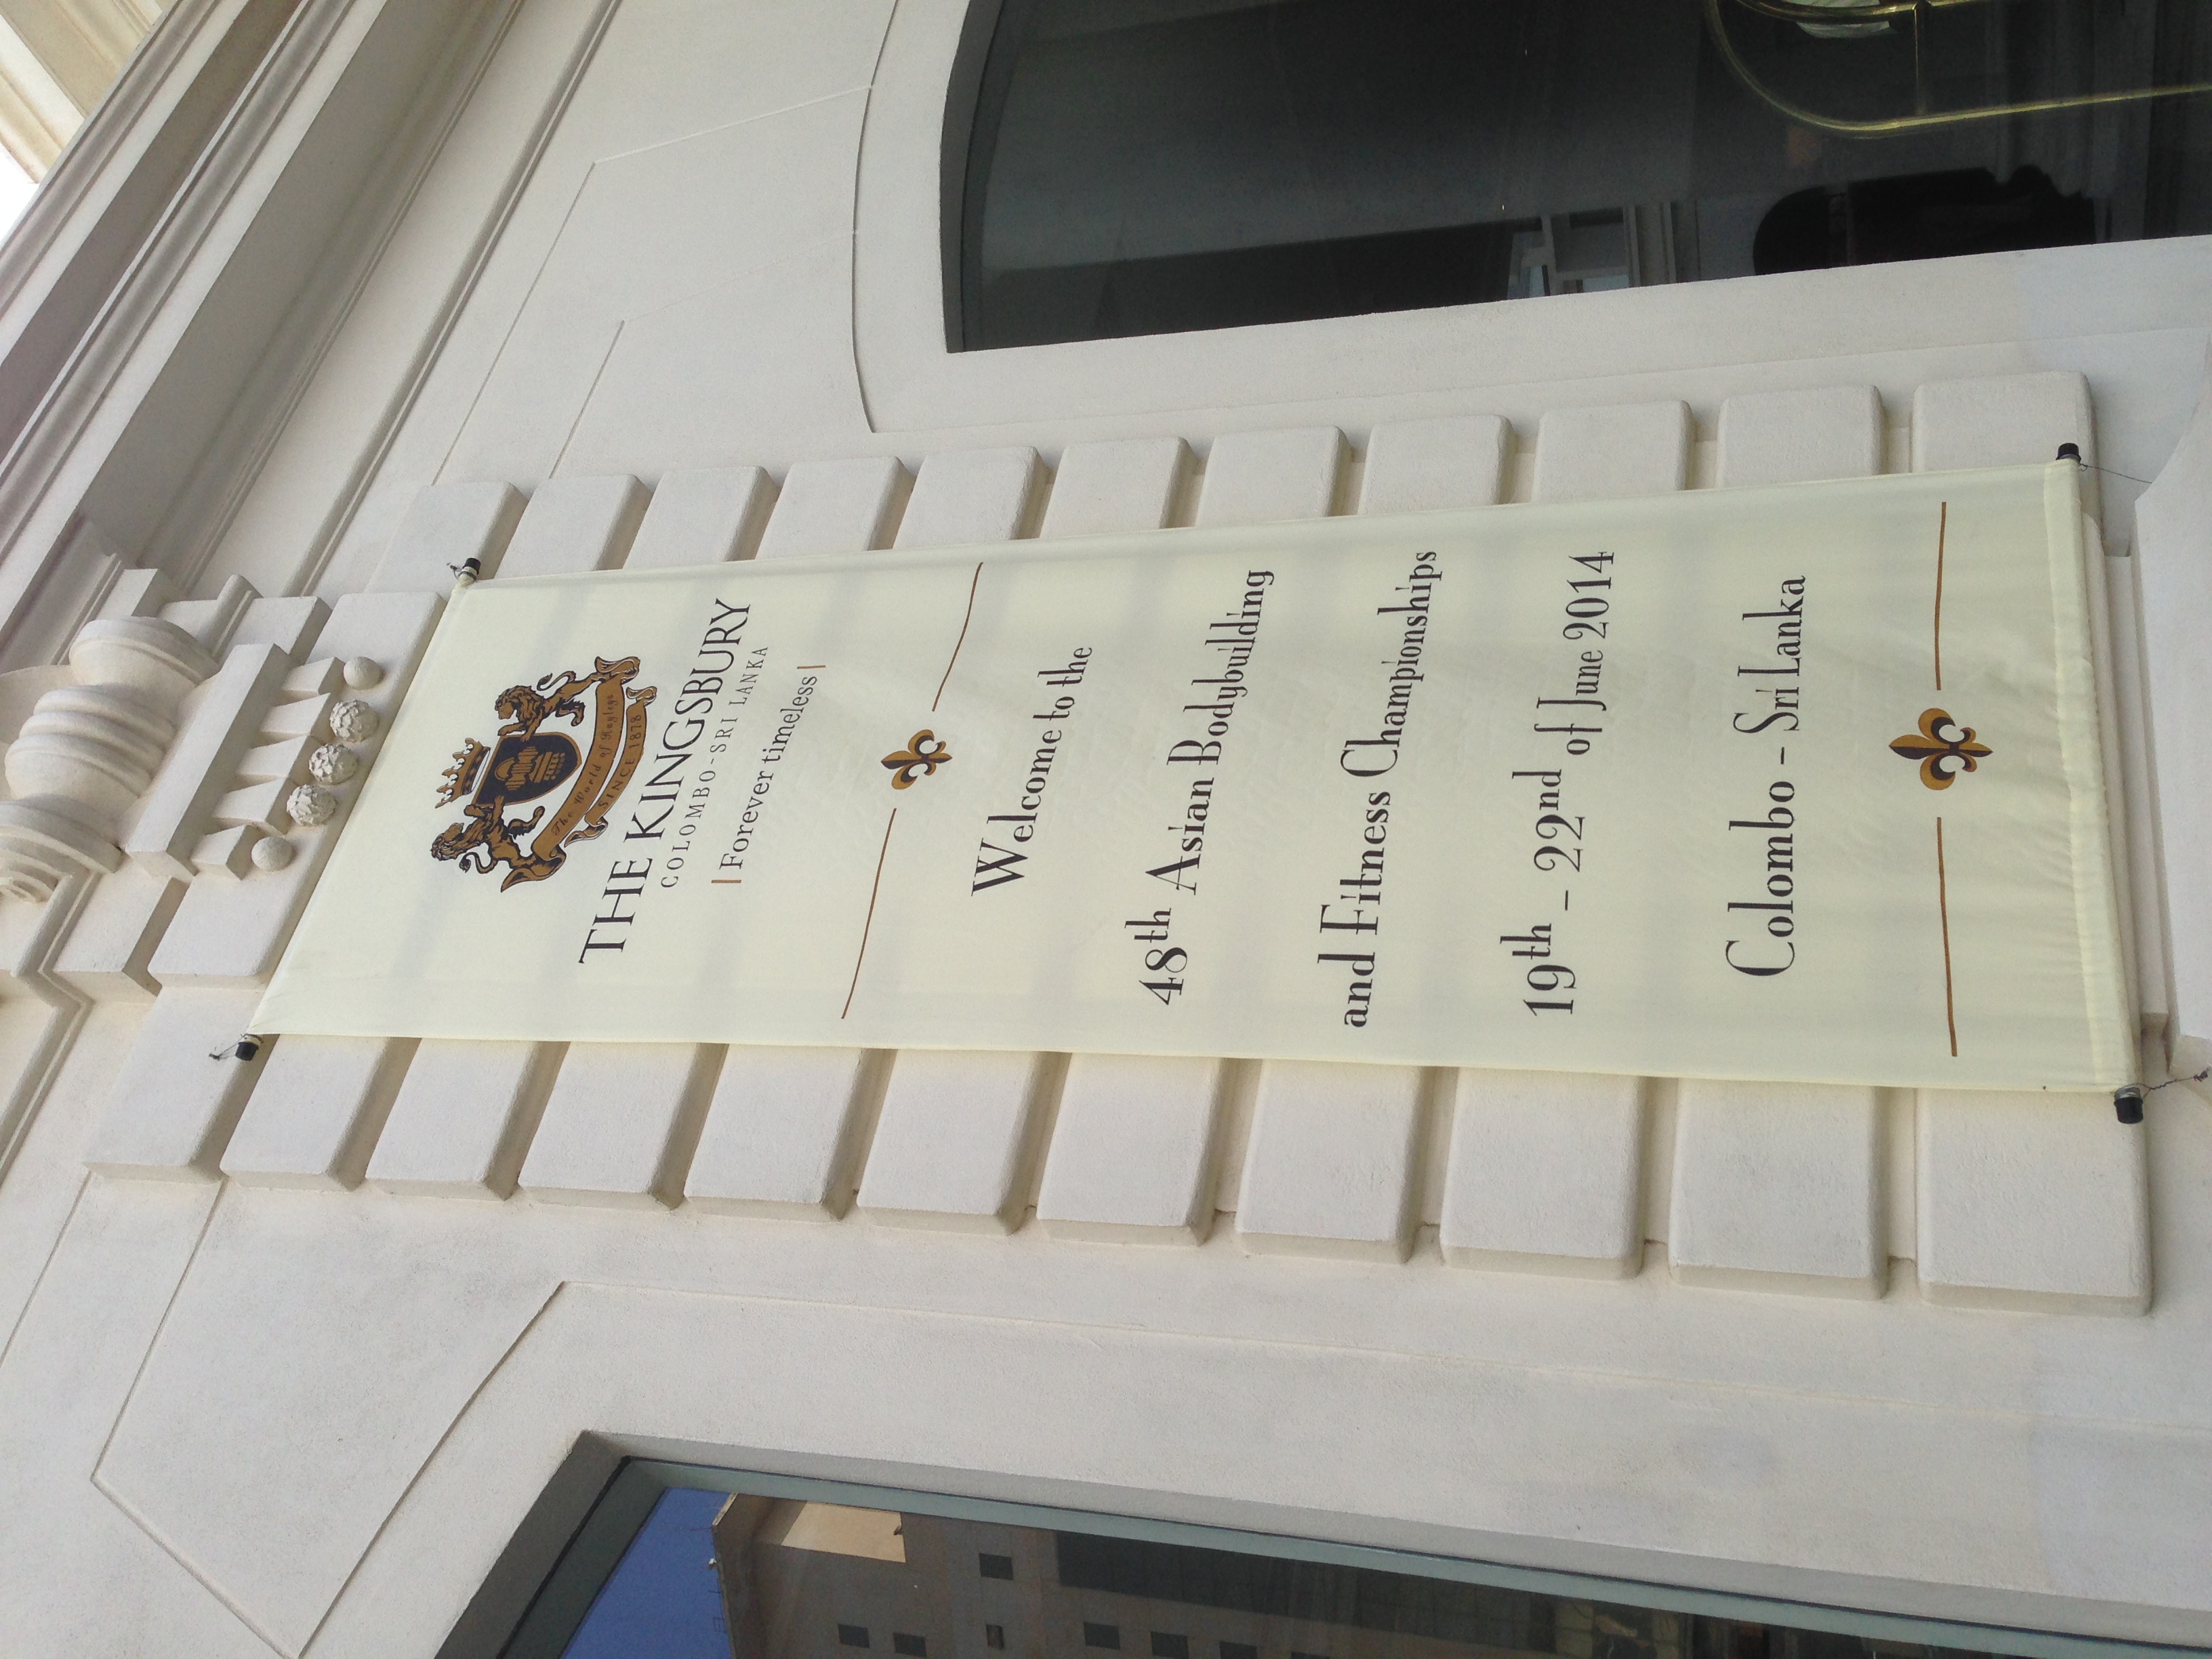 The World of Hayleys
SINCE 1878
THE KINGSBURY
COLOMBO-SRI LANKA
| Forever timeless |
Welcome to the
48th Asian Bodybuilding
and Fitness Championships
19th - 22nd of June 2014
Colombo - Sri Lanka